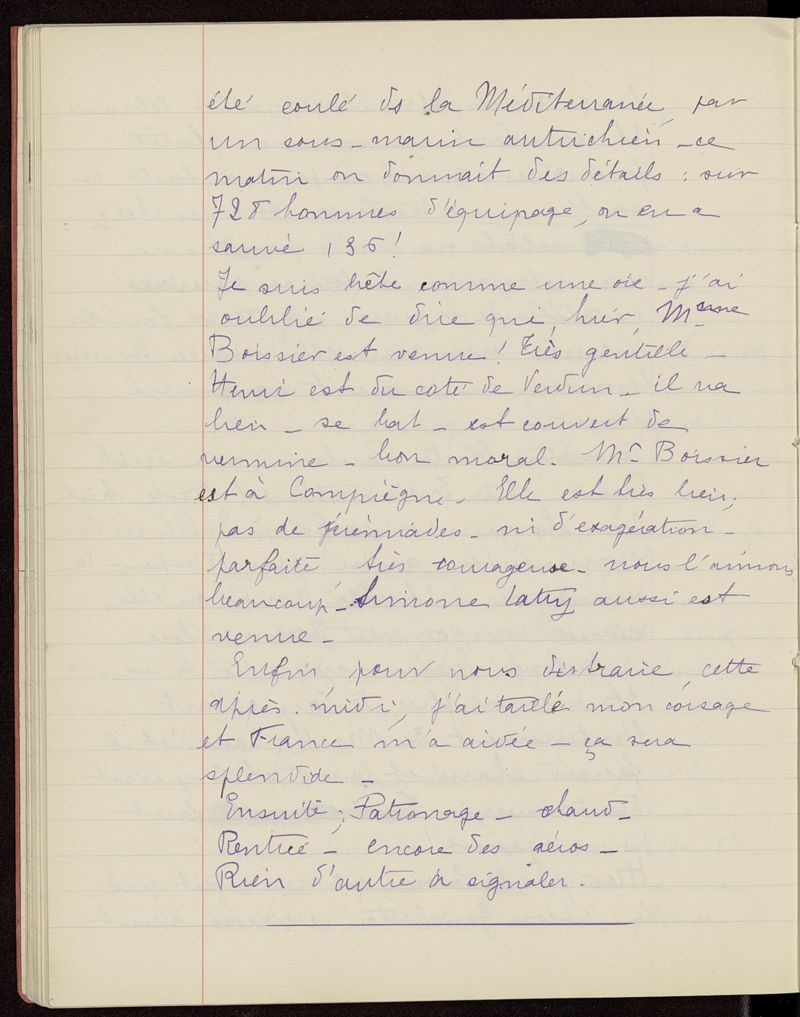 été coulé ds la Méditerranée par
un sous-marin autrichien - ce
matin on donnait des détails : sur
728 hommes d'équipage, on en a
sauvé 136!
Je suis bête comme une oie - j'ai
oublié de dire que, hier, Mme
Boissier est venue! Très gentille -
Henri est du coté de Verdun - il va
bien - se bat - est couvert de
vermine - bon moral. Mr Boissier
est à Compiègne. Elle est très bien;
pas de jérémiades - ni d'exagération -
parfaite très courageuse - nous l'aimons
beaucoup - Simone aussi est
venue -
Enfin, pour nous distraire, cette
après-midi, j'ai taillé mon corsage
et France m'a aidée - ça sera
splendide -
Ensuite; Patronage - chaud -
Rentrée - encore des aéros -
Rien d'autre à signaler.